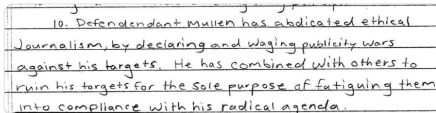 10. Defendendant Mullen has abdicated ethical
Journalism, by declaring and waging publicity wars
against his targets. He has combined with others to
ruin his targets for the sole purpose of fatiguing them
into compliance with his radical agenda.